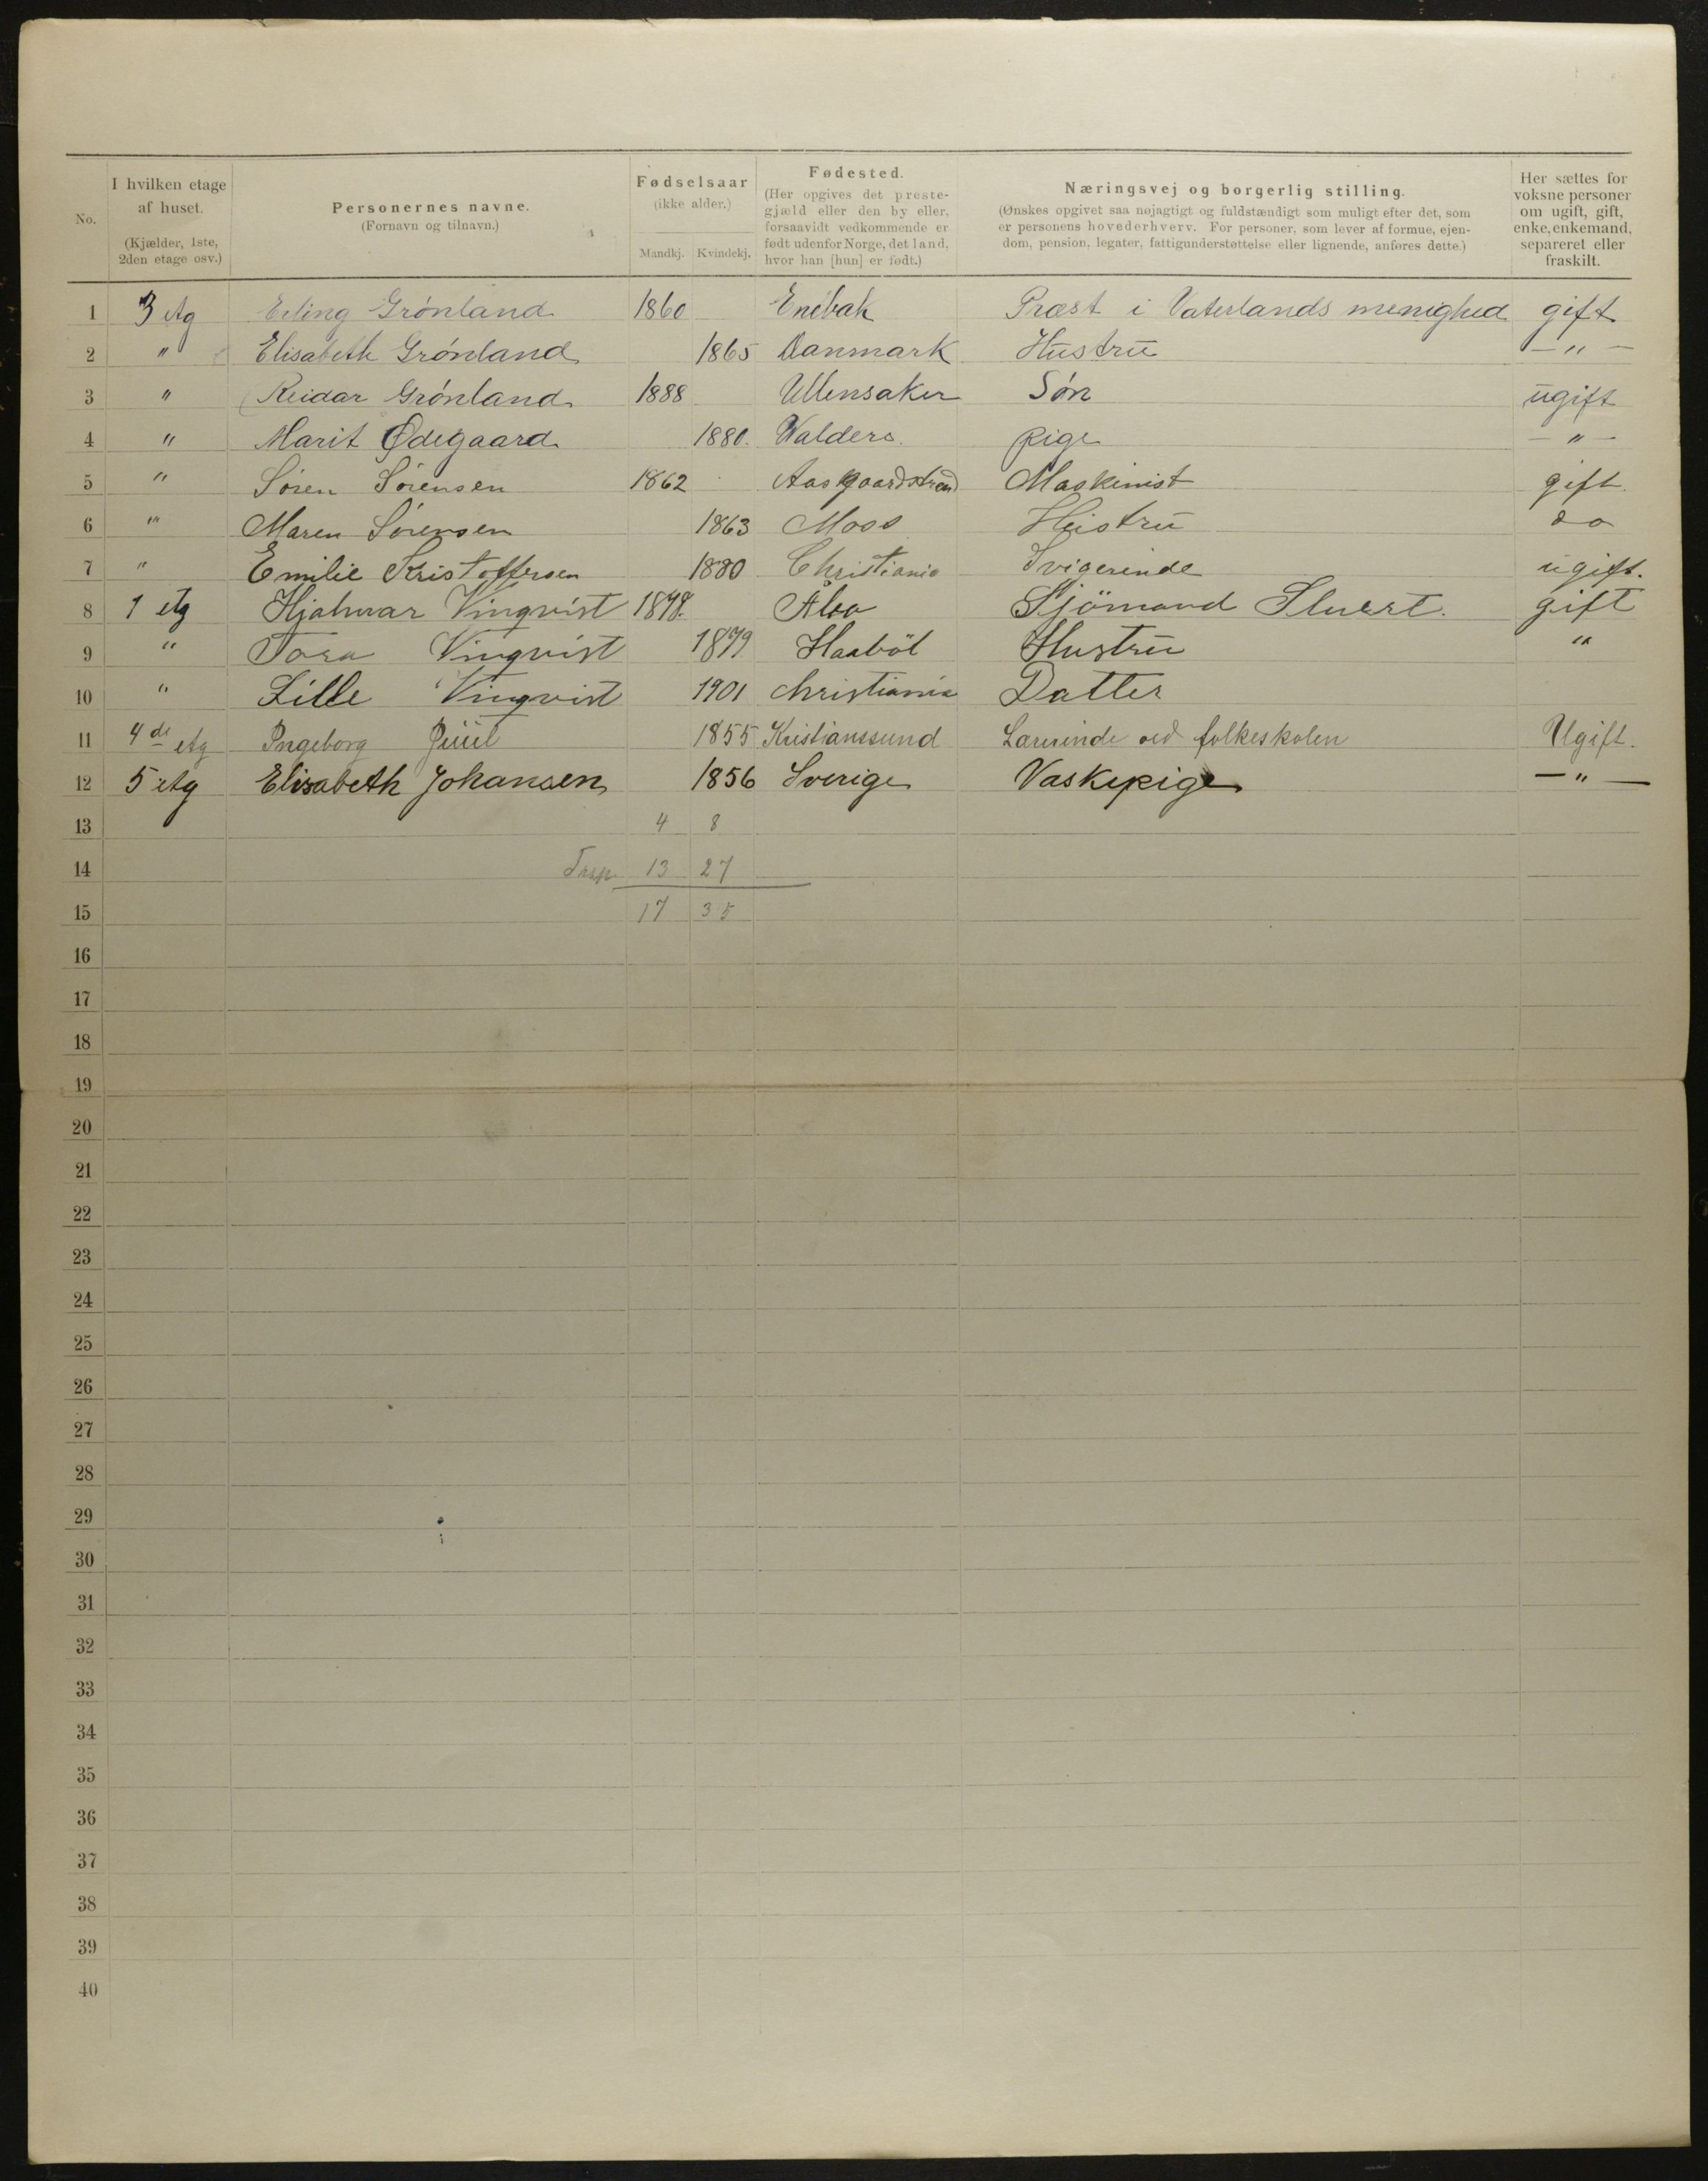 No.
I hvilken etage
af huset.
(Kjælder, 1ste,
2den etage osv.)
Personernes navne.
(Fornavn og tilnavn.)
Fødselsaar
(ikke alder.)
Mandkj. Kvindekj.
Fødested.
(Her opgives det preste-
gjæld eller den by eller,
forsaavidt vedkommende er
født udenfor Norge, det land,
hvor han [hun] er født.)
Næringsvej og borgerlig stilling.
(Ønskes opgivet saa nøjagtigt og fuldstændigt som muligt efter det, som
er personens hovederhverv. For personer, som lever af formue, ejen-
dom, pension, legater, fattigunderstøttelse eller lignende, anføres dette.)
Her sættes for
voksne personer
om ugift, gift,
enke, enkemand,
separeret eller
fraskilt.
1 3 etg Erling Grönland 1860 Enebak Præst i Vaterlands menighed gift
2 " Elisabeth Grönland 1865 Danmark Hustru — " —
3 " Reidar Grönland 1888 Ullensaker Søn ugift
4 " Marit Ødegaard 1880. Valders. pige — " —
5 " Sören Sörensen 1862 Aasgaardstrand Maskinist gift
6 " Maren Sörensen 1863 Moss Hustru do
7 " Emilie Kristoffersen 1880 Christiania Svigerinde ugift.
8 1 etg Hjalmar Vinqvist Sjömand gift
9 " Tora Vinqvist 1879 Haaböl Hustru "
10 " Lille Vinqvist 1901 Christiania Datter
11 4de etg Ingeborg Juul 1855 Kristianssund Lærerinde ved folkeskolen Ugift.
12 5 etg Elisabeth Johansen 1856 Sverige Vaskepige — " —
13 4 8
14 Trsp. 13 27
15 17 35
16
17
18
19
20
21
22
23
24
25
26
27
28
29
30
31
32
33
34
35
36
37
38
39
40